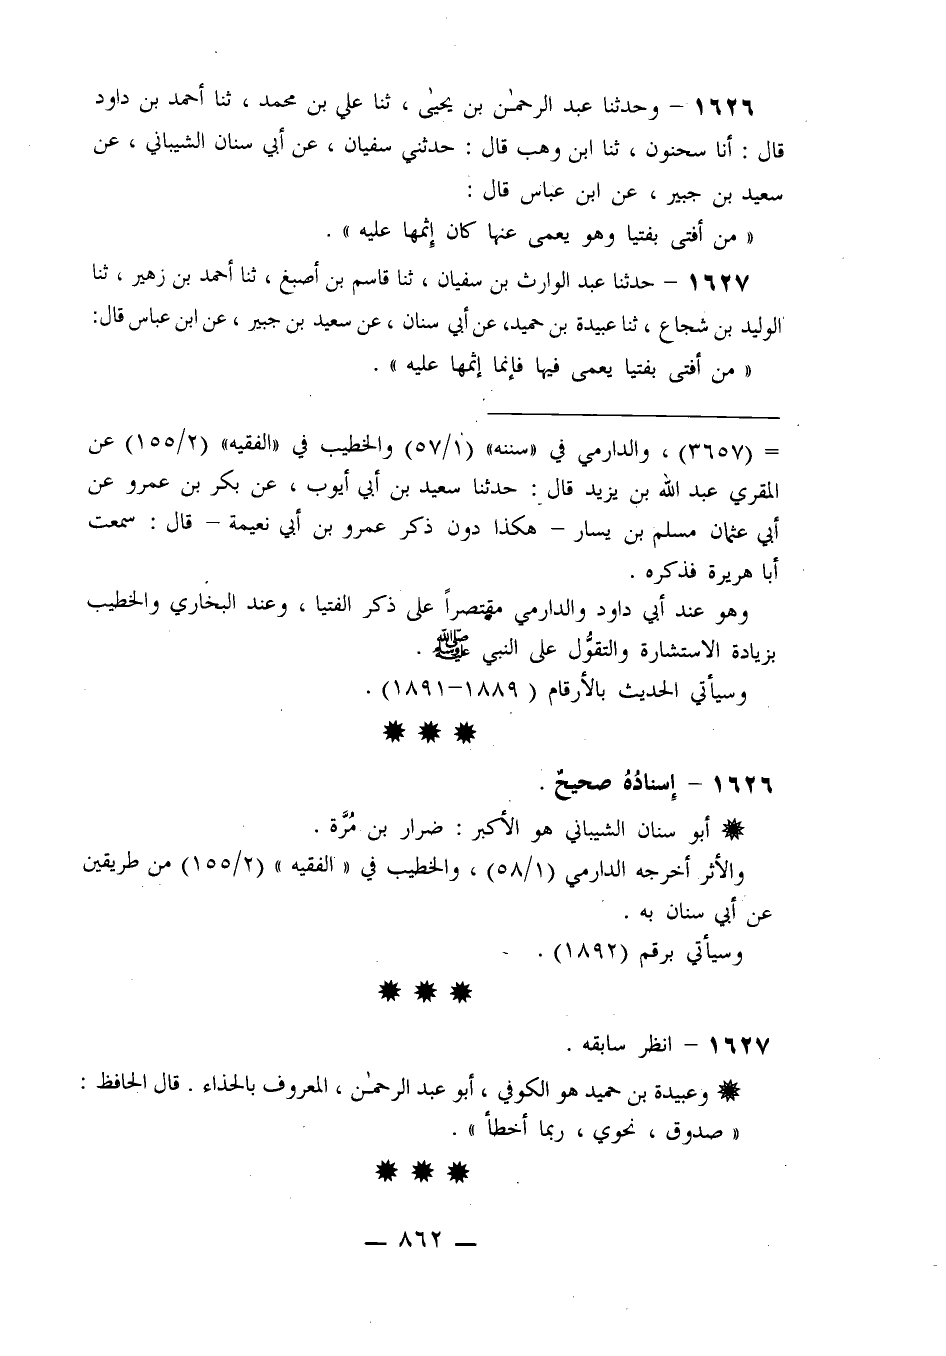 ١٦٢٦ – وحدثنا عبد الرحمٰن بن يحيىٰ ، ثنا علي بن محمد ، ثنا أحمد بن داود
قال : أنا سحنون ، ثنا ابن وهب قال : حدثني سفيان ، عن أبي سنان الشيباني ، عن
سعيد بن جبير ، عن ابن عباس قال :
« من أفتى بفتيا وهو يعمى عنها كان إثمها عليه » .
١٦٢٧ – حدثنا عبد الوارث بن سفيان ، ثنا قاسم بن أصبغ ، ثنا أحمد بن زهير ، ثنا
الوليد بن شجاع ، ثنا عبيدة بن حميد، عن أبي سنان ، عن سعيد بن جبير ، عن ابن عباس قال:
« من أفتى بفتيا يعمى فيها فإنما إثمها عليه » .
= (٣٦٥٧) ، والدارمي في «سننه» (٥٧/١) والخطيب في «الفقيه» (١٥٥/٢) عن
المقري عبد الله بن يزيد قال : حدثنا سعيد بن أبي أيوب ، عن بكر بن عمرو عن
أبي عثمان مسلم بن يسار – هكذا دون ذكر عمرو بن أبي نعيمة – قال : سمعت
أبا هريرة فذكره .
وهو عند أبي داود والدارمي مقتصراً على ذكر الفتيا ، وعند البخاري والخطيب
بزيادة الاستشارة والتقوُّل على النبي ﷺ .
وسيأتي الحديث بالأرقام ( ١٨٨٩–١٨٩١) .
١٦٢٦ – إسنادُهُ صحيحٌ .
أبو سنان الشيباني هو الأكبر : ضرار بن مُرَّة .
والأثر أخرجه الدارمي (٥٨/١) ، والخطيب في « الفقيه » (١٥٥/٢) من طريقين
عن أبي سنان به .
وسيأتي برقم (١٨٩٢) .
١٦٢٧ – انظر سابقه .
وعبيدة بن حميد هو الكوفي ، أبو عبد الرحمٰن ، المعروف بالحذاء . قال الحافظ :
« صدوق ، نحوي ، ربما أخطأ » .
— ٨٦٢ —